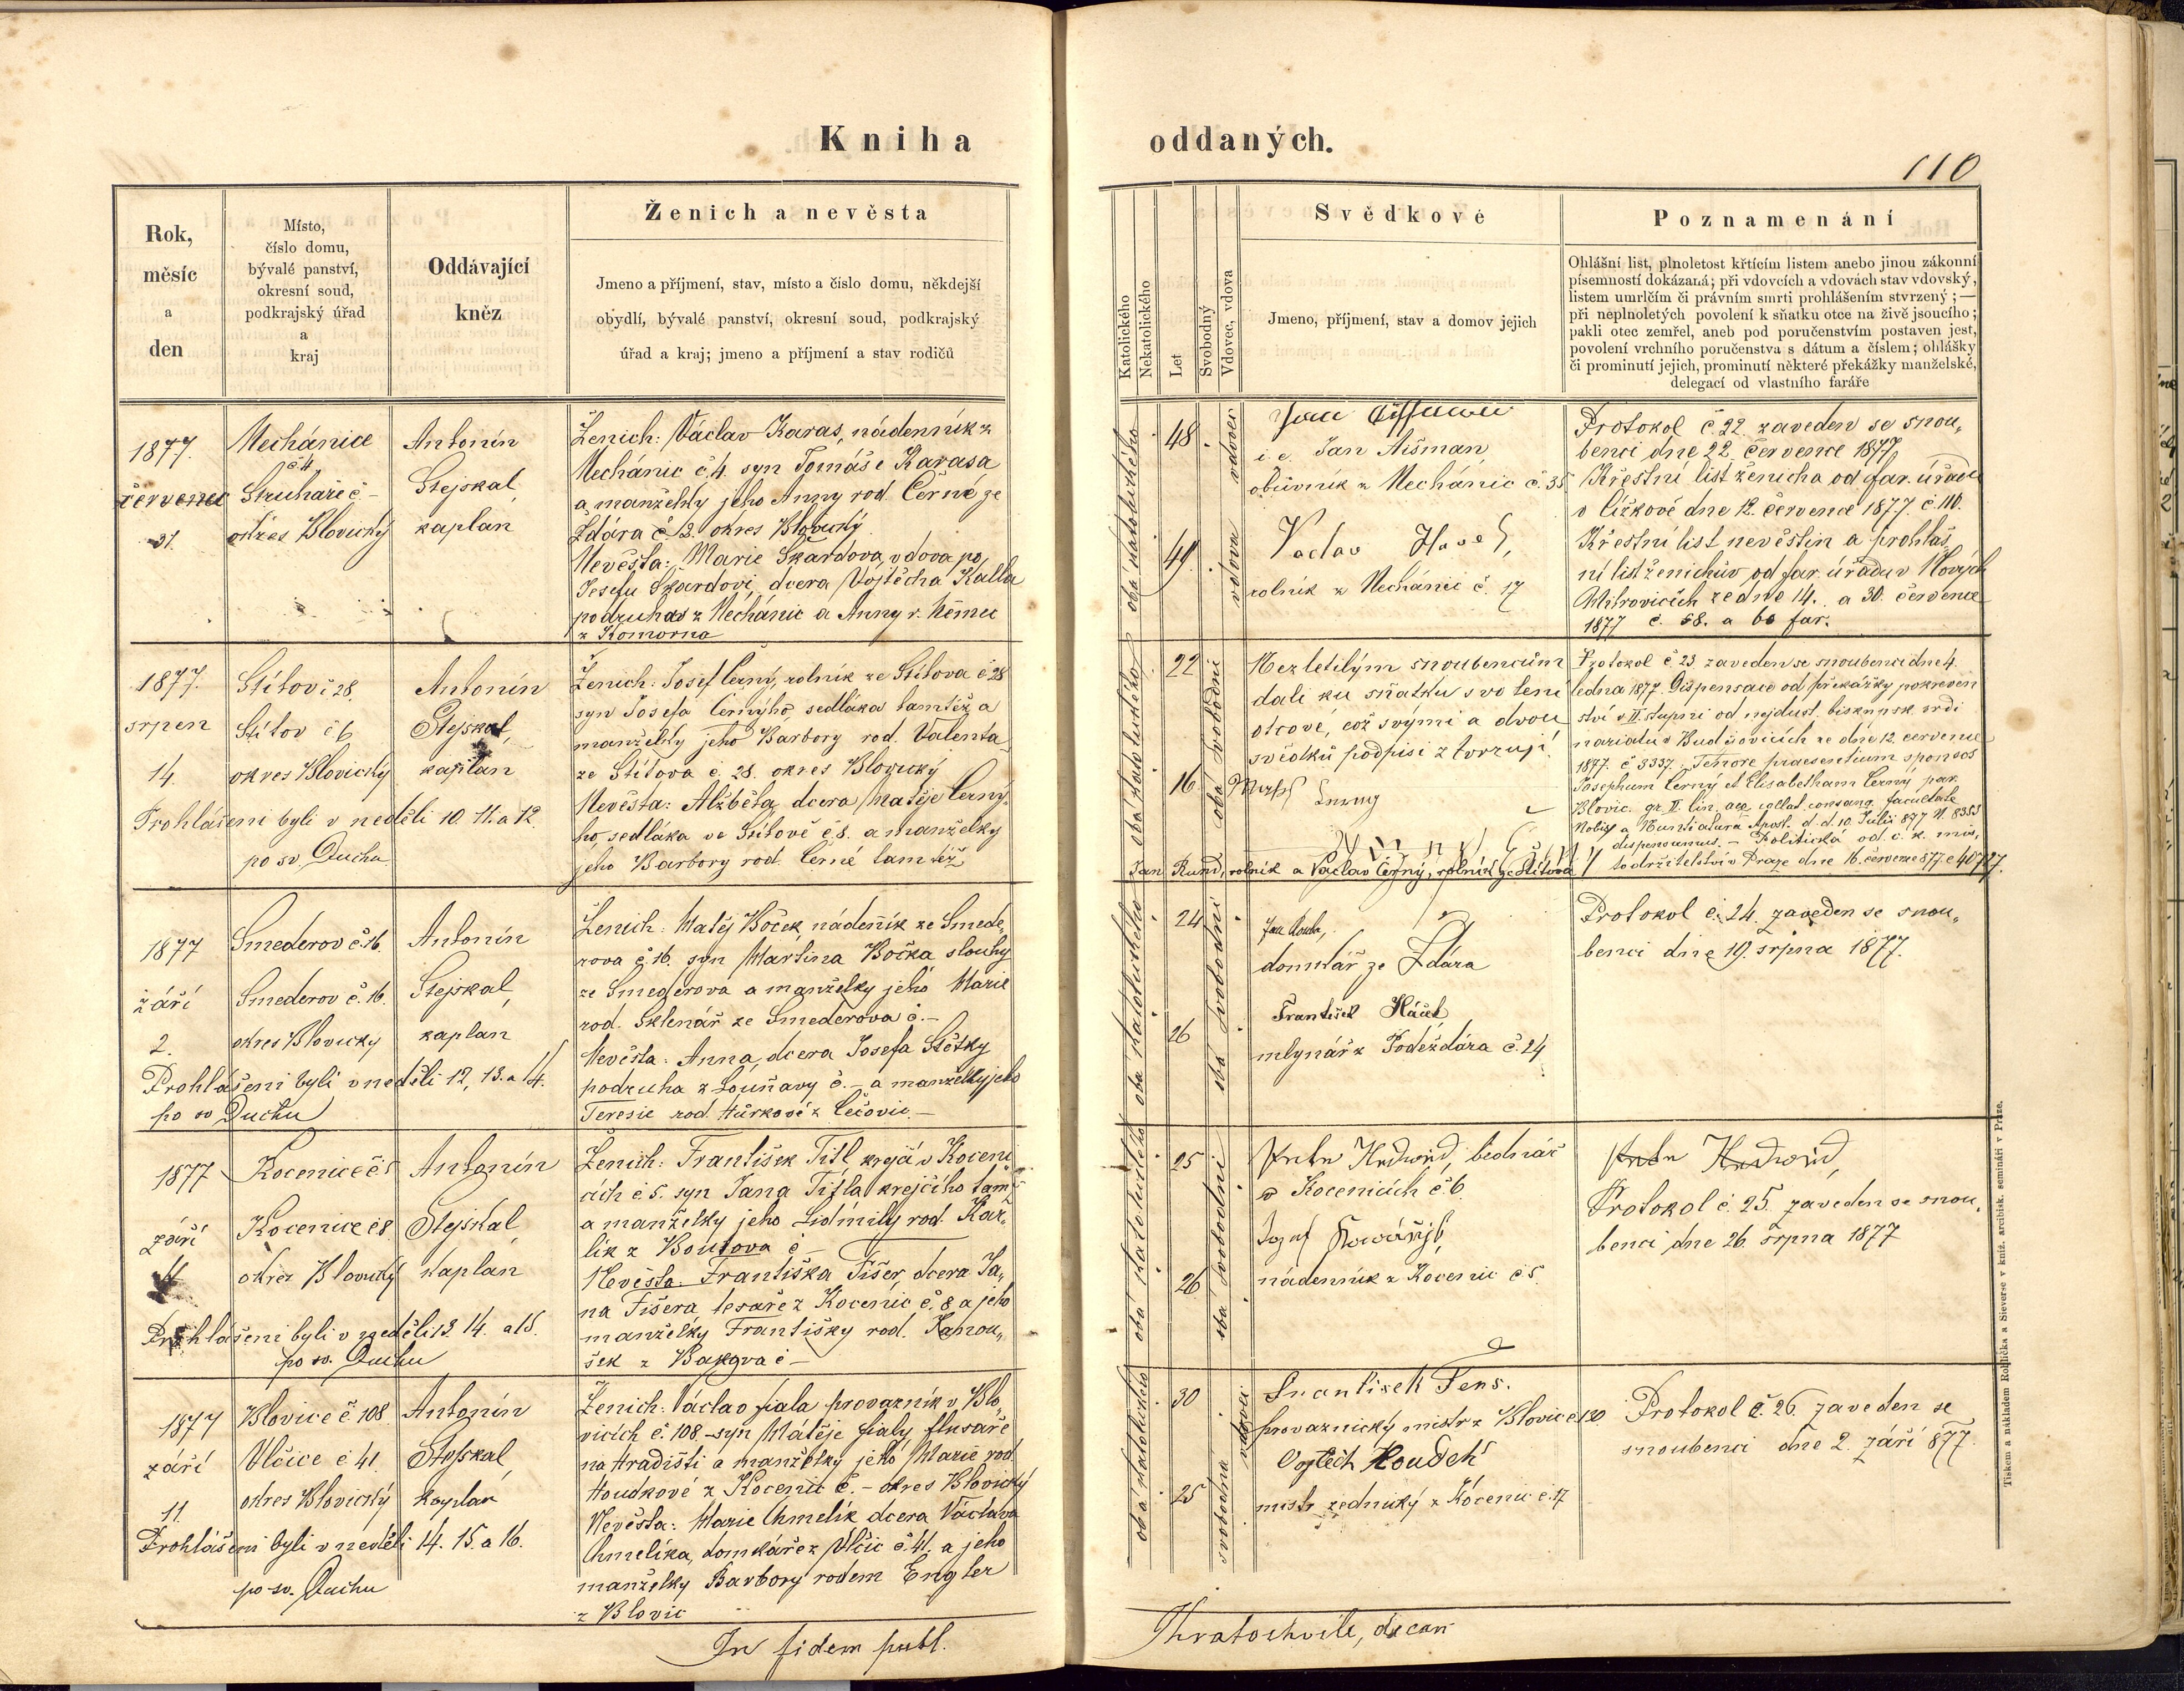 Kniha
oddaných.
110
Rok,
měsíc
a
den
Místo,
číslo domu,
bývalé panství,
okresní soud,
podkrajský úřad
a
kraj
Oddávající
kněz
Ženich a nevěsta
Jmeno a příjmení, stav, místo a čislo domu, někdejší
obydlí, bývalé panství, okresní soud, podkrajský
úřad a kraj; jmeno a příjmení a stav rodičů
Katolického
Nekatolického
Let
Svobodný
Vdovec, vdova
Svědkové
Jmeno, příjmení, stav a domov jejich
Poznamenání
Ohlášní list, plnoletost křtícím listem anebo jinou zákonní
písemností dokázaná; při vdovcích a vdovách stav vdovský,
listem umrlčím či právním smrti prohlášením stvrzený; —
při neplnoletých povolení k sňatku otce na živě jsoucího;
pakli otec zemřel, aneb pod poručenstvím postaven jest,
povolení vrchního poručenstva s dátum a číslem; ohlášky
či prominutí jejich, prominutí některé překážky manželské,
delegací od vlastního faráře
1877.
červenec
31.
Mechánice
č 4
Struhaře č –
okres Blovický
Antonín
Stejskal,
kaplan
Ženich: Václav Karas, nádenník z
Mechánic č.4. syn Tomáše Karasa
a manželky jeho Anny rod. Černé ze
Ždára č 12. okres Blovický
Nevěsta: Marie Škardova, vdova po
Josefu Škardovi, dcera Vojtěcha Kalla
podruha z Mechánic a Anny r. Němec
z Komorna
oba katolického
48
49
vdovec
vdova
i. e. Jan Aišman,
obuvník z Mechánic č. 35
Vaclav Havel,
rolník z Mechánic č. 17
Protokol č 22. zaveden se snou„
benci dne 22. července 1877
Křestní list ženicha od far. úřadu
v Čížkově dne 12. července 1877. č. 110.
Křestní list nevěstin a prohláš
ní list ženichův od far. úřadu v Nových
Mitrovicích ze dne 14. a 30. července
1877 č. 58. a 60 far.
1877.
srpen
14.
Štítov č 28
Štítov č 6
okres Blovický
Antonín
Stejskal,
kaplan
Prohlášeni byli v neděli 10. 11. a 12.
po sv. Duchu
Ženich: Josef Černý, rolník ze Štítova č 28
syn Josefa Černýho, sedláka tamtéž a
manželky jeho Barbory rod. Valenta
ze Štítova č. 28. okres Blovický
Nevěsta: Alžběta, dcera Matěje Černý-
ho, sedláka ve Štítově č 8. a manželky
jeho Barbory rod. Černé tamtéž
oba katolického
22
16
oba svobodní
Nezletilým snoubencům
dali ku sňatku svolení
otcové, což svými a dvou
svědků podpisi ztvrzují.
Jan Rund, rolník a Václav Černý, rolník ze Štítova
Protokol č 23. zaveden se snoubenci dne 4.
ledna 1877. Dispensace od překážky pokreven
ství v II. stupni od nejdůst. biskupsk. ordi
nariatu v Budějovicích ze dne 12. července
1877. č 3337. Tenore praesentium sponsos
Josephum Černý et Elisabetham Černý par.
Blovic. gr. II. lin. aeq. collat. consang. facultate
Nobis a Nuntiatura Apost. d. d. 10. Julii 877 N. 8353
dispensamus. – Politická od c. k. mís„
todržitelství v Praze dne 16. července 877. č 40727.
1877
září
2.
Smederov č. 16.
Smederov č. 16.
okres Blovický
Antonín
Stejskal,
kaplan
Prohlášeni byli v neděli 12, 13. a 14.
po sv. Duchu
Ženich: Matěj Boček, nádeník ze Smede„
rova č. 16. syn Martina Bočka slouhy
ze Smederova a manželky jeho Marie
rod. Sklenář ze Smederova č. –
Nevěsta: Anna, dcera Josefa Štětky
podruha z Louňavy č. – a manželky jeho
Teresie rod. Hůrkové z Čečovic. –
oba katolického
24
26
oba svobodní
domkář ze Ždára
František Háček
mlynář z Podeždára č. 24
Protokol č. 24. zaveden se snou„
benci dne 19. srpna 1877.
1877
září
11
Kocenice č 5
Kocenice č 8
okres Blovický
Antonín
Stejskal,
kaplan
Prohlášeni byli v neděli 13. 14. a 15.
po sv. Duchu
Ženich: František Titl krejčí v Koceni
cích č. 5. syn Jana Titla krejčího tamž
a manželky jeho Lidmily rod. Kar„
lík z Bouřova č –
Nevěsta: Františka Fišer, dcera Ja„
na Fišera tesaře z Kocenic č. 8 a jeho
manželky Františky rod. Hanou„
šek z Bakova č –
oba katolického
25
26
oba svobodní
bednář
v Kocenicích č. 6.
nádenník z Kocenic č 5.
Protokol č. 25. zaveden se snou„
benci dne 26. srpna 1877
1877
září
11.
Blovice č 108
Vlčice č 41.
okres Blovický
Antonín
Stejskal,
kaplan
Prohlášeni byli v neděli 14. 15. a 16.
po sv. Duchu
Ženich: Václav Fiala provazník v Blo„
vicích č. 108. – syn Matěje Fialy, flusaře
na Hradišti a manželky jeho Marie rod.
Houdkové z Kocenic č. – okres Blovický
Nevěsta: Marie Chmelík dcera Václava
Chmelíka, domkáře z Vlčic č. 41. a jeho
manželky Barbory rodem Engler
z Blovic
oba katolického
30
25
vdovec
svobodna
František Fens.
provaznický mistr z Blovic č 120
Vojtěch Houdek
mistr zednický z Kocenic č. 17
Protokol č. 26. zaveden se
snoubenci dne 2. září 877.
In fidem publ.
Kratochvíle, decan
Tiskem a nákladem Rohlíčka a Sieverse v kníž. arcibisk. semináři v Praze.